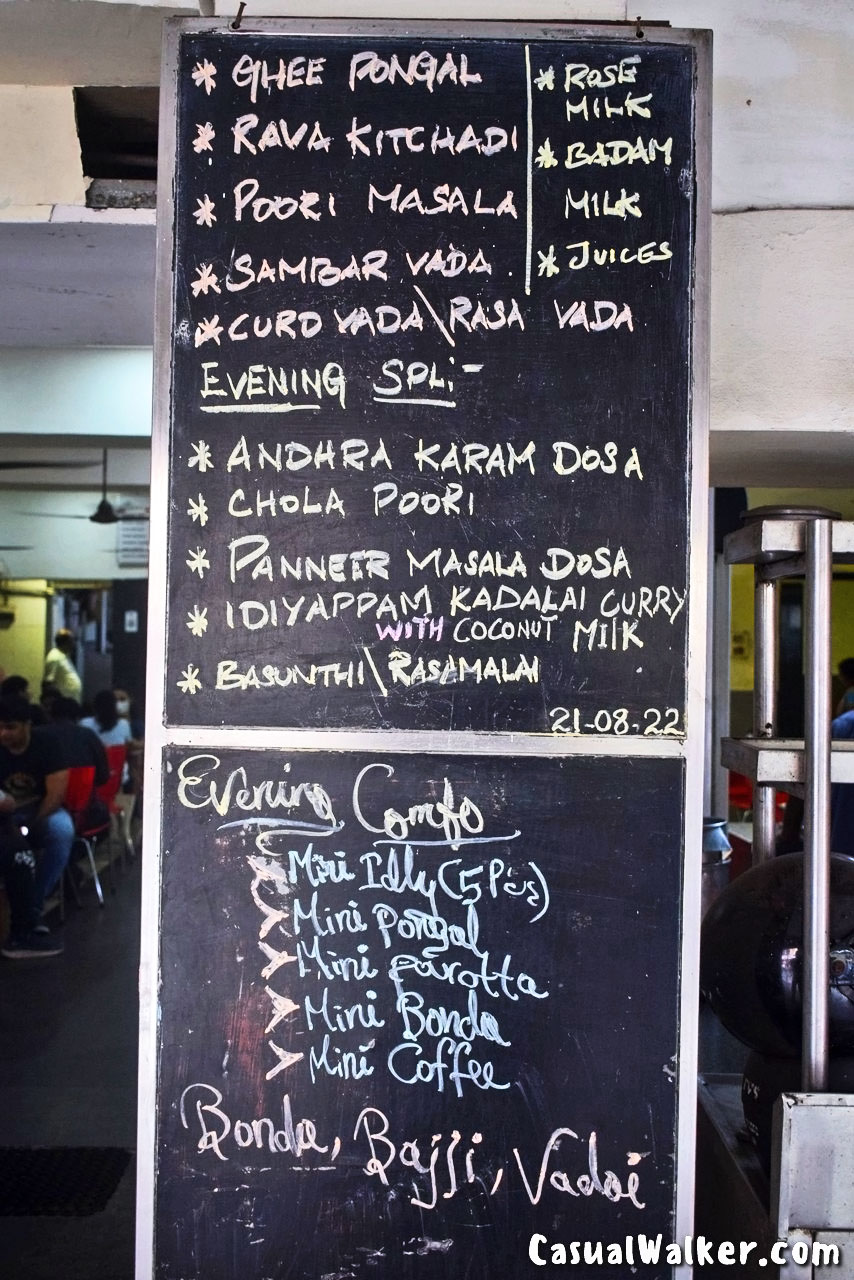 * GHEE PONGAL
* RAVA KITCHADI
* POORI MASALA
* SAMBAR VADA.
* CURD VADA\RASA VADA
* ROSE
MILK
* BADAM
MILK
* JUICES
EVENING SPL:-
* ANDHRA KARAM DOSA
* CHOLA POORI
* PANNEER MASALA DOSA
* IDIYAPPAM KADALAI CURRY
WITH COCONUT MILK
* BASUNTHI\RASAMALAI
21-08-22
Evening Combo
Mini Idly (5 Pcs)
Mini Pongal
Mini parotta
Mini Bonda
Mini Coffee
Bonda, Bajji, Vadai
CASUALWALKER.COM